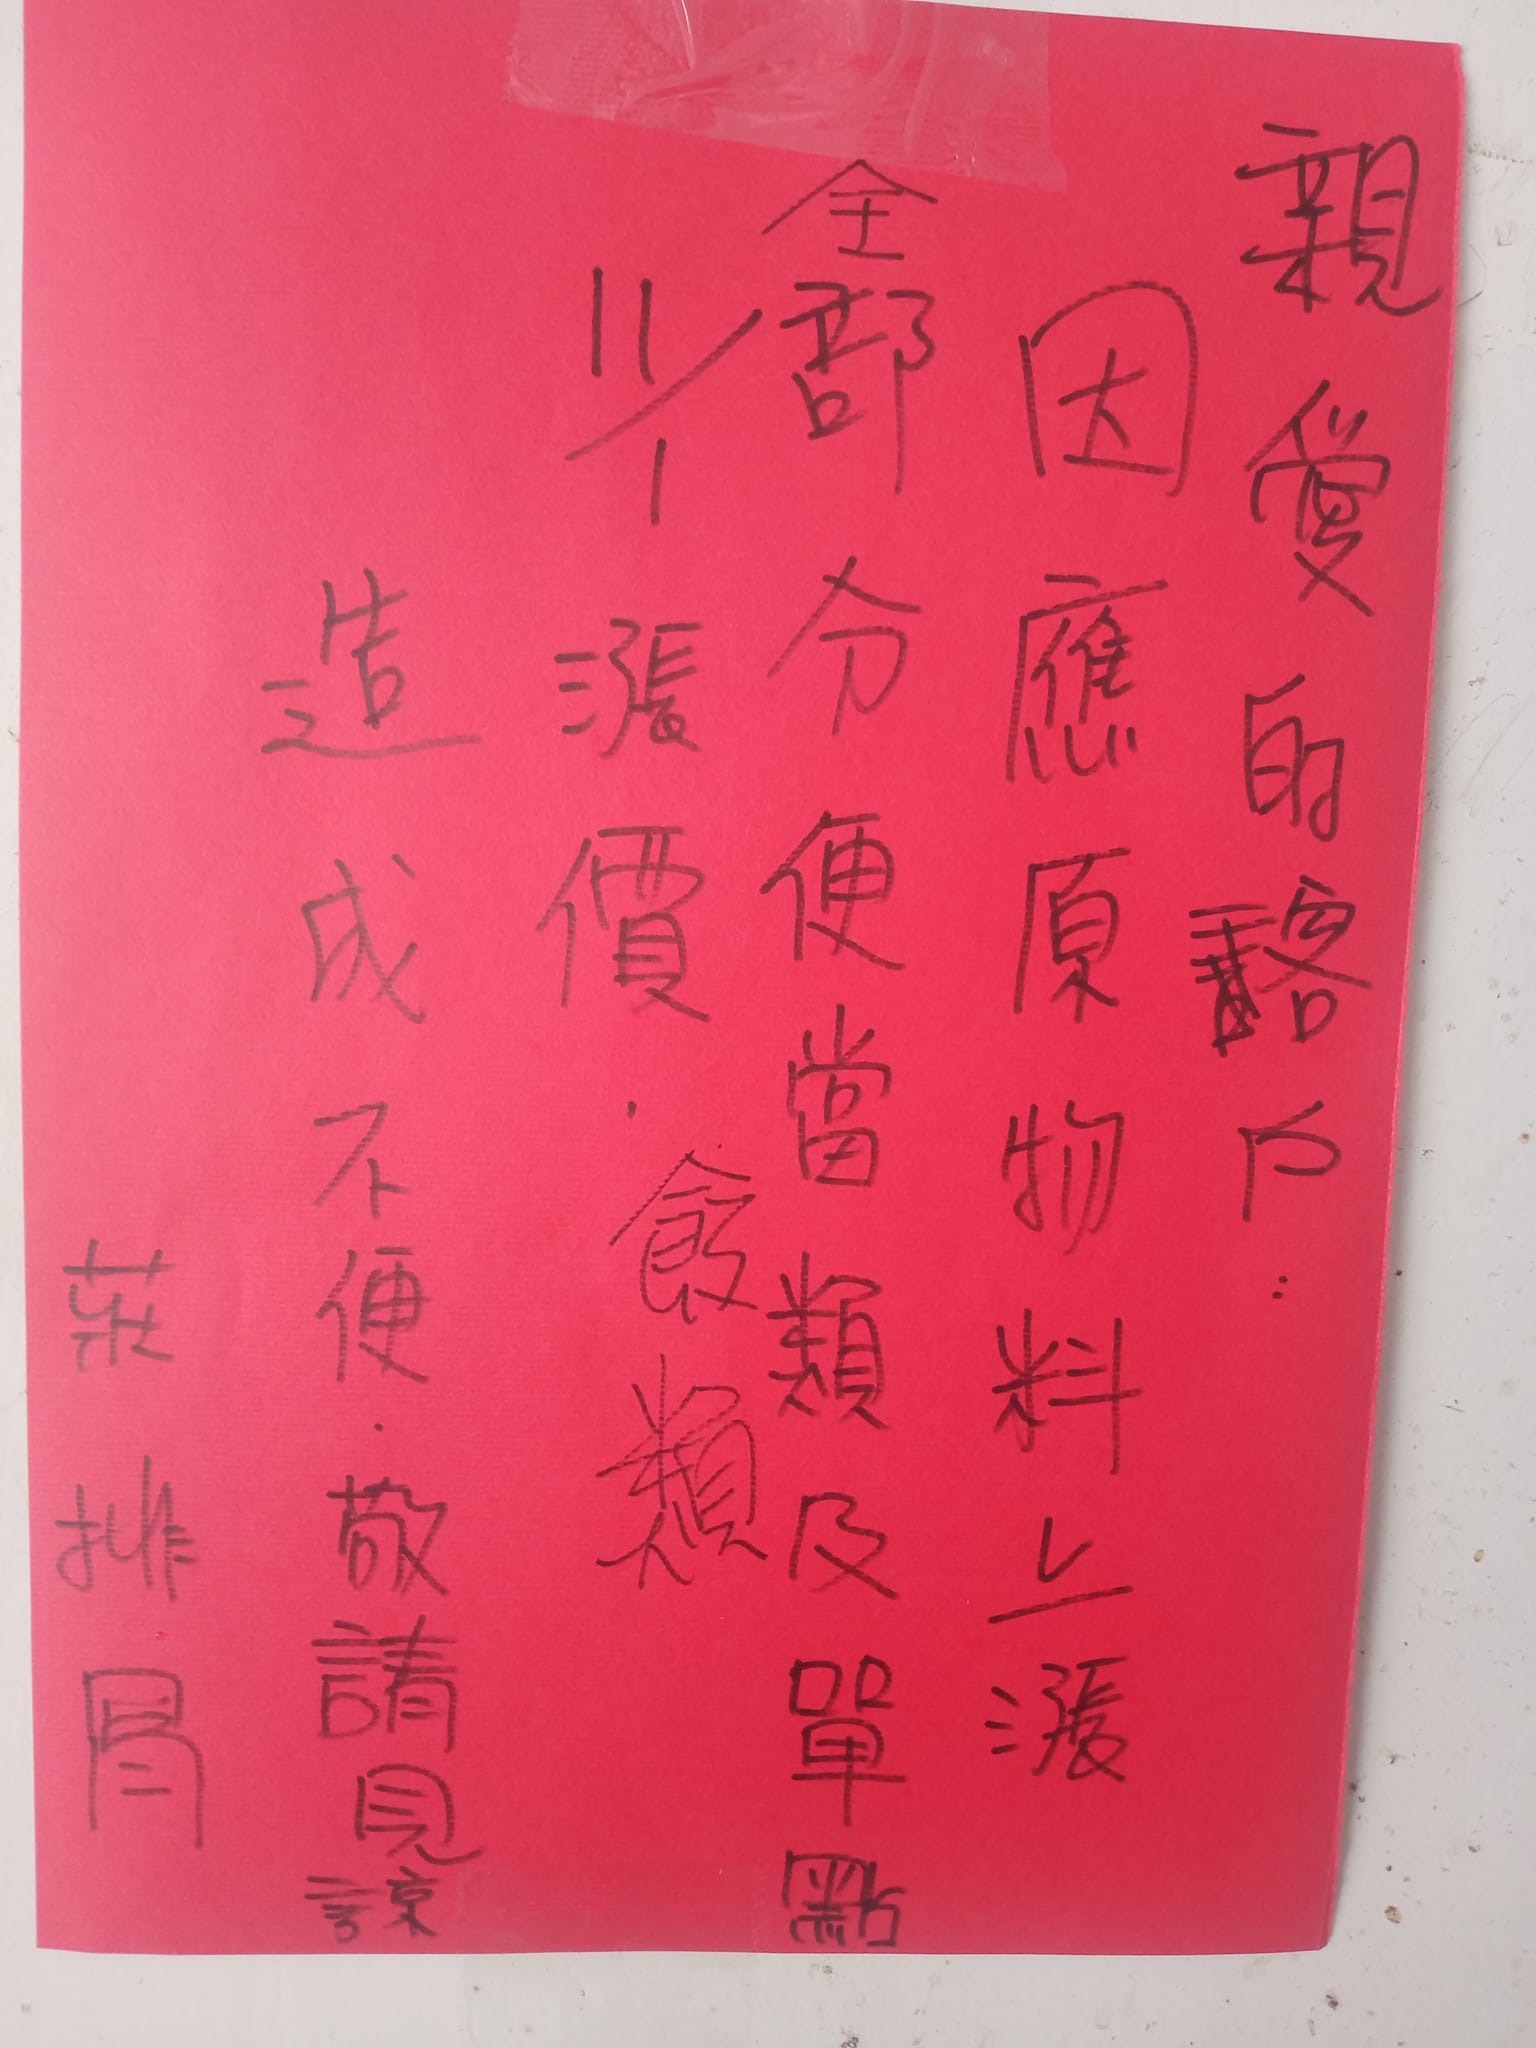 親愛的客戶：
因應原物料上漲
全部分便當類及單點
11/1漲價．飯類
造成不便．敬請見諒
莊排骨